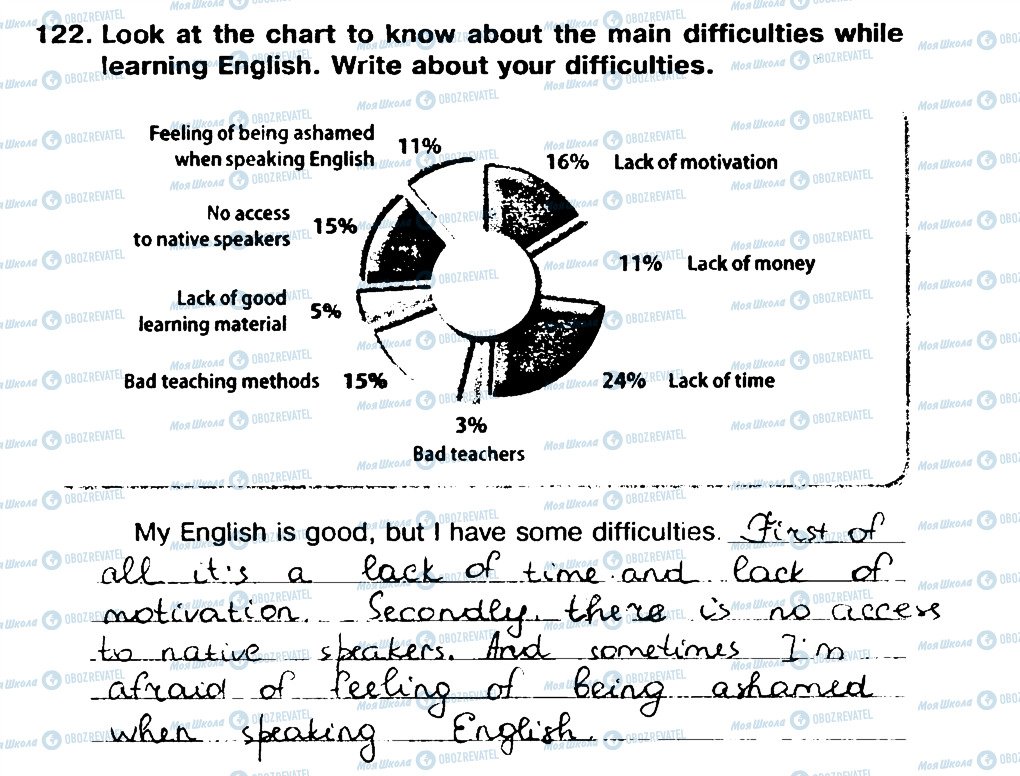 122. Look at the chart to know about the main difficulties while
learning English. Write about your difficulties.
Feeling of being ashamed
when speaking English
11%
16% Lack of motivation
No access
to native speakers
15%
11% Lack of money
Lack of good
learning material
5%
Bad teaching methods 15%
24% Lack of time
3%
Bad teachers
My English is good, but I have some difficulties. First of
all it's a lack of time and lack of
motivation. Secondly, there is no access
to native speakers. And sometimes I'm
afraid of feeling of being ashamed
when speaking English.
Моя Школа OBOZREVATEL